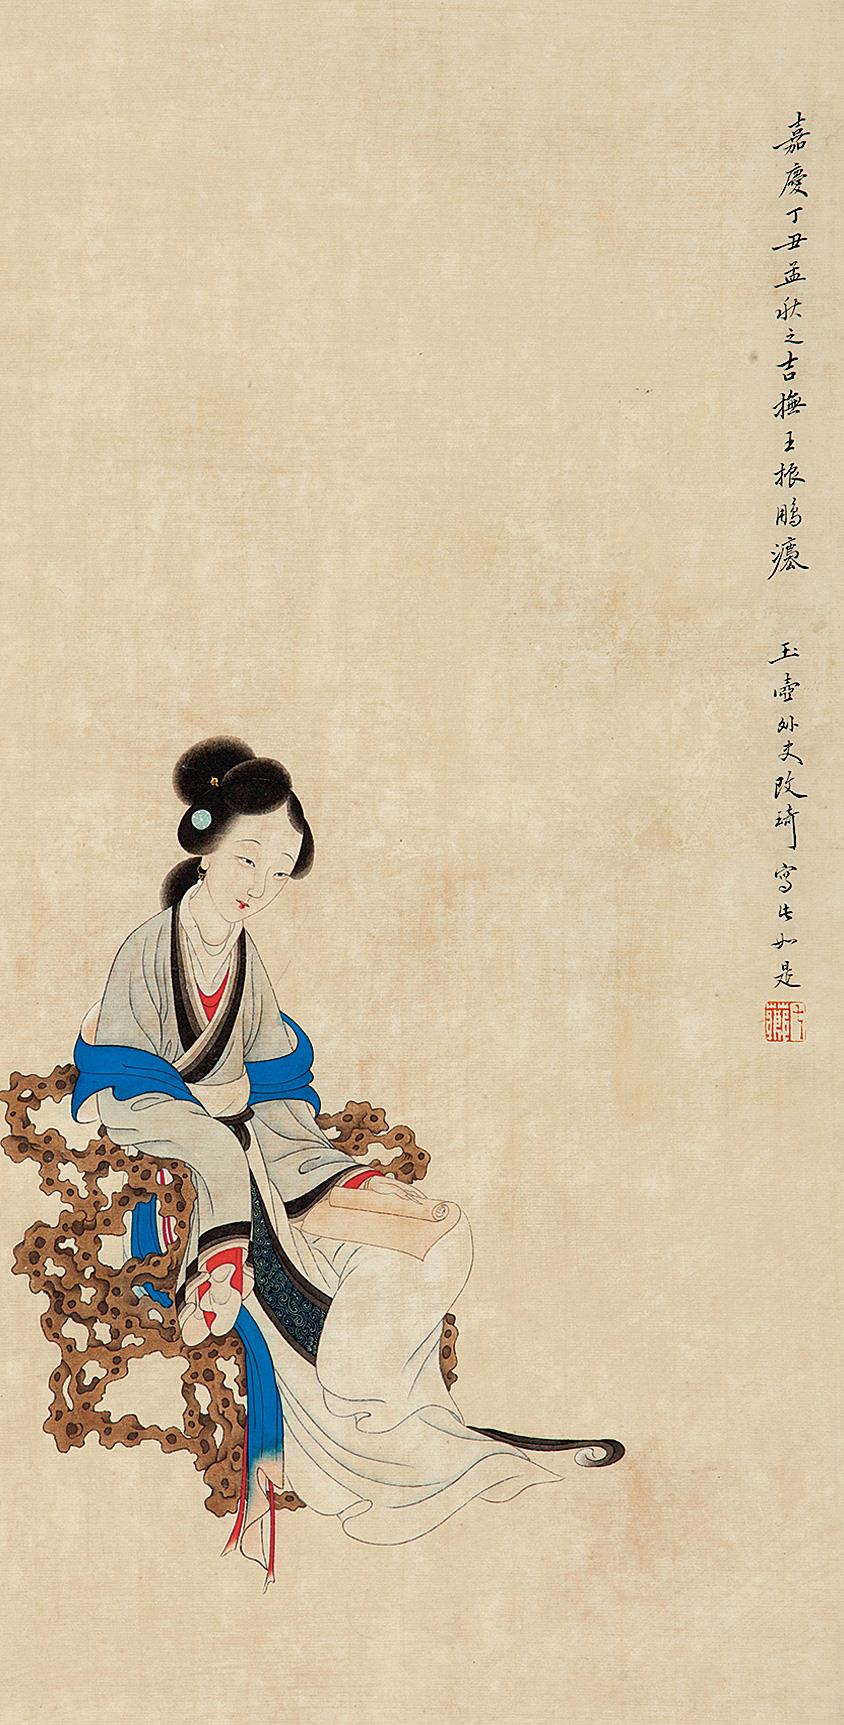 嘉慶丁丑孟秋之吉撫王振鵬灋 玉壺外史改琦寫生如是